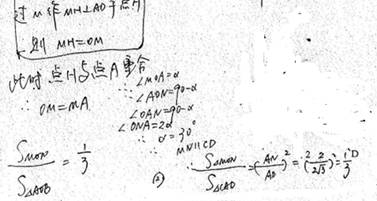 过M作MH⊥AO于点H
则 MH=OM
此时 点H与点A重合
∴ OM=MA
∵ ∠MOA=α
∴ ∠AON=90-α
∠OAN=90-α
∠ONA=2α
∴ α=30°
∴ MN∥CD
S△MON/S△AOB = 1/3
② S△AMN/S△CAD = (AN/AD)² = (2/2√3)² = 1/3